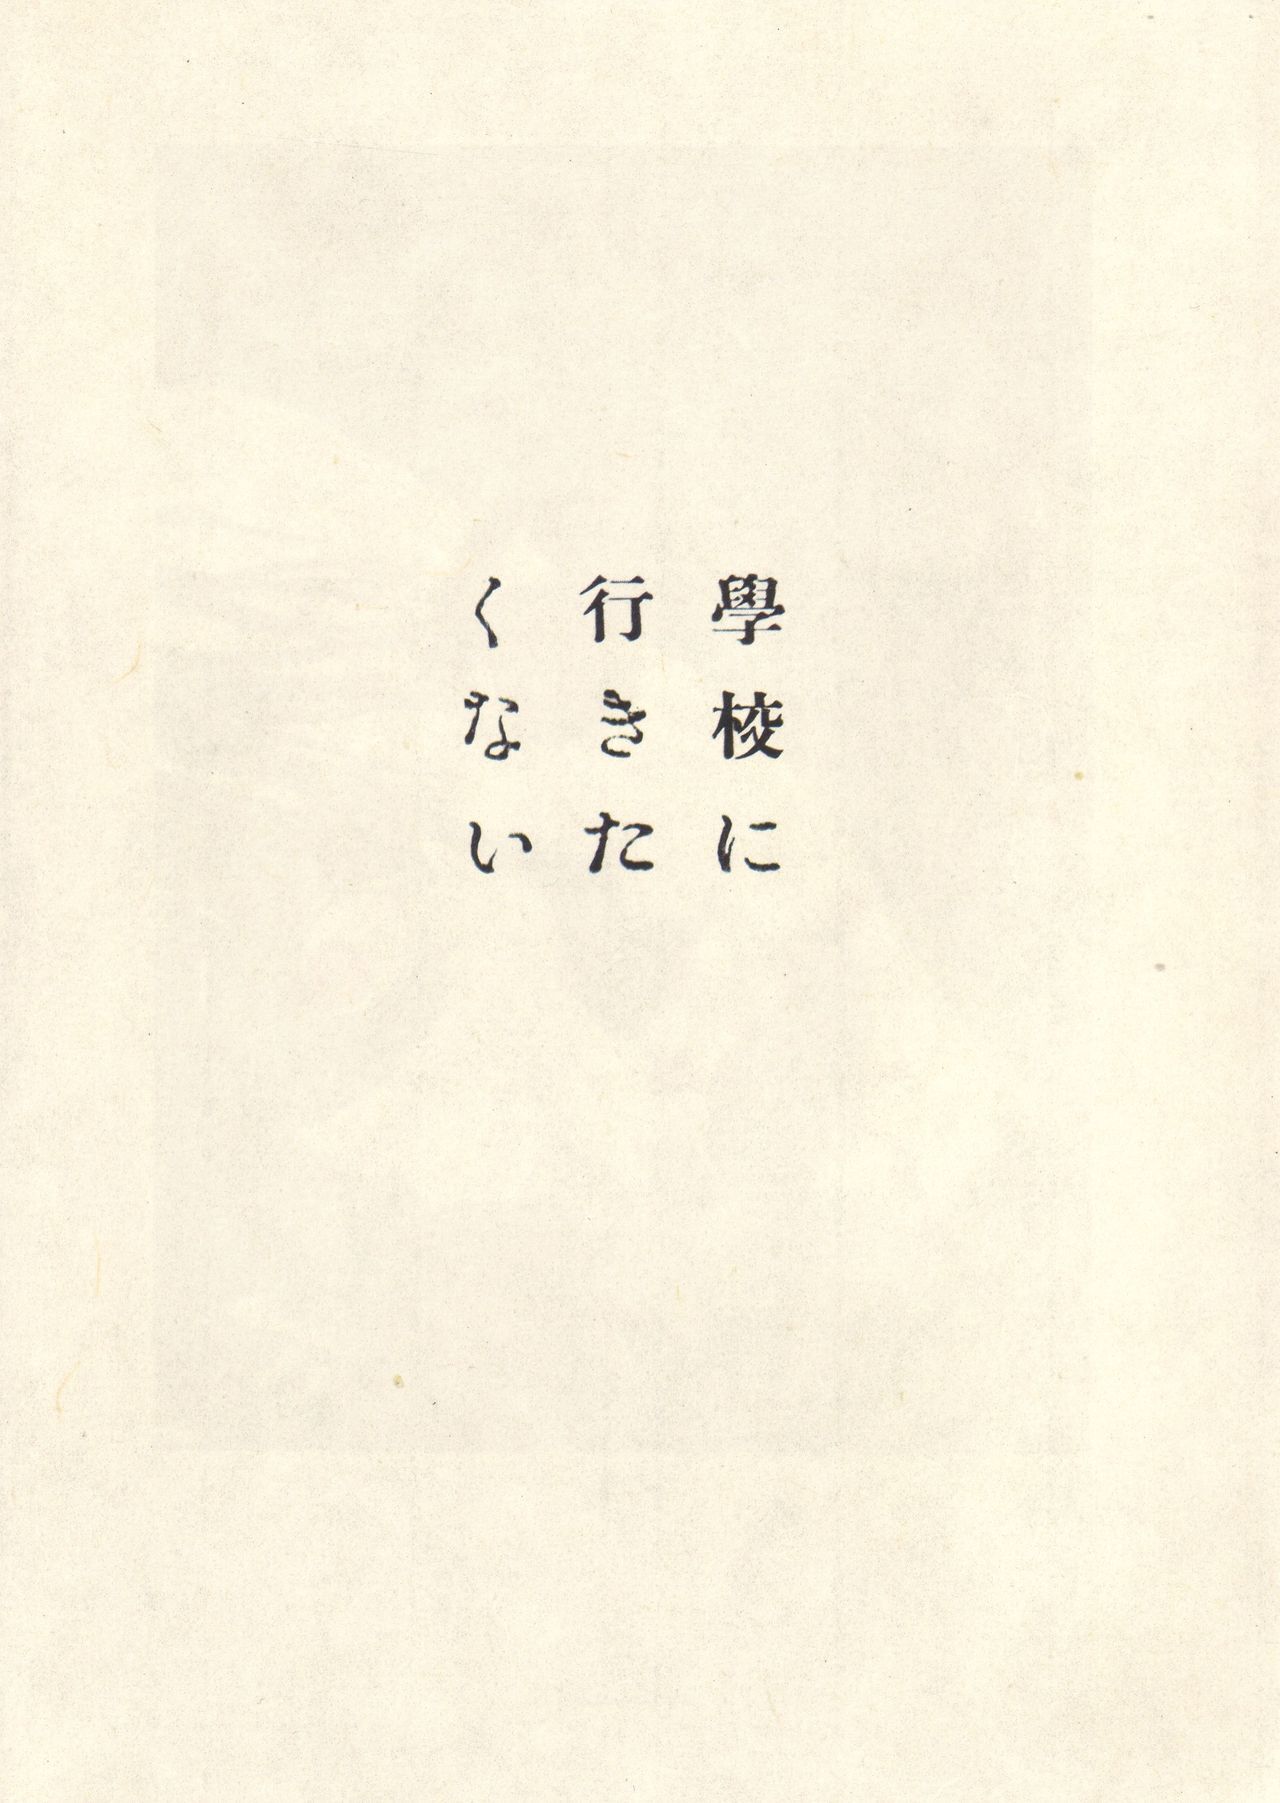 學校に
行きた
くない